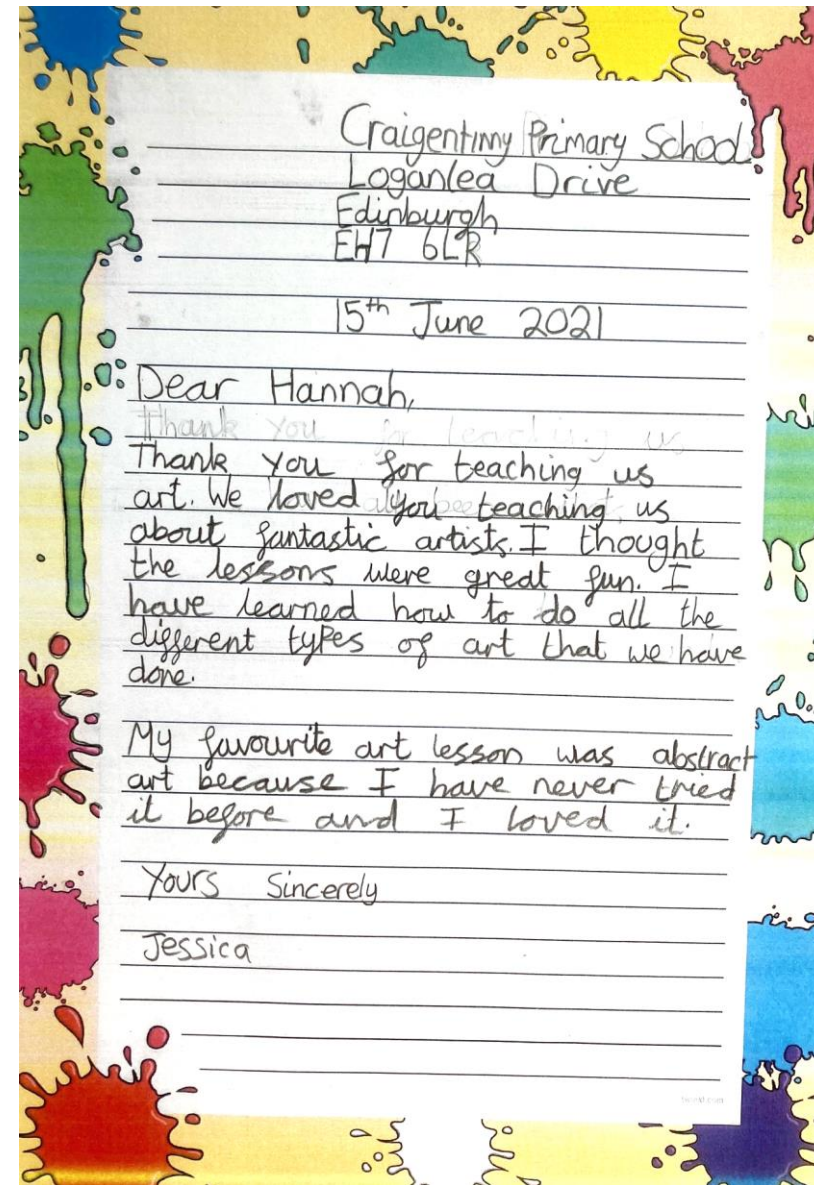 Craigentinny Primary School
Loganlea Drive
Edinburgh
EH7 6LR
15th June 2021
Dear Hannah,
Thank you for teaching us
Thank you for teaching us
art. We loved you teaching us
about fantastic artists. I thought
the lessons were great fun. I
have learned how to do all the
different types of art that we have
done.
My favourite art lesson was abstract
art because I have never tried
it before and I loved it.
Yours Sincerely
Jessica